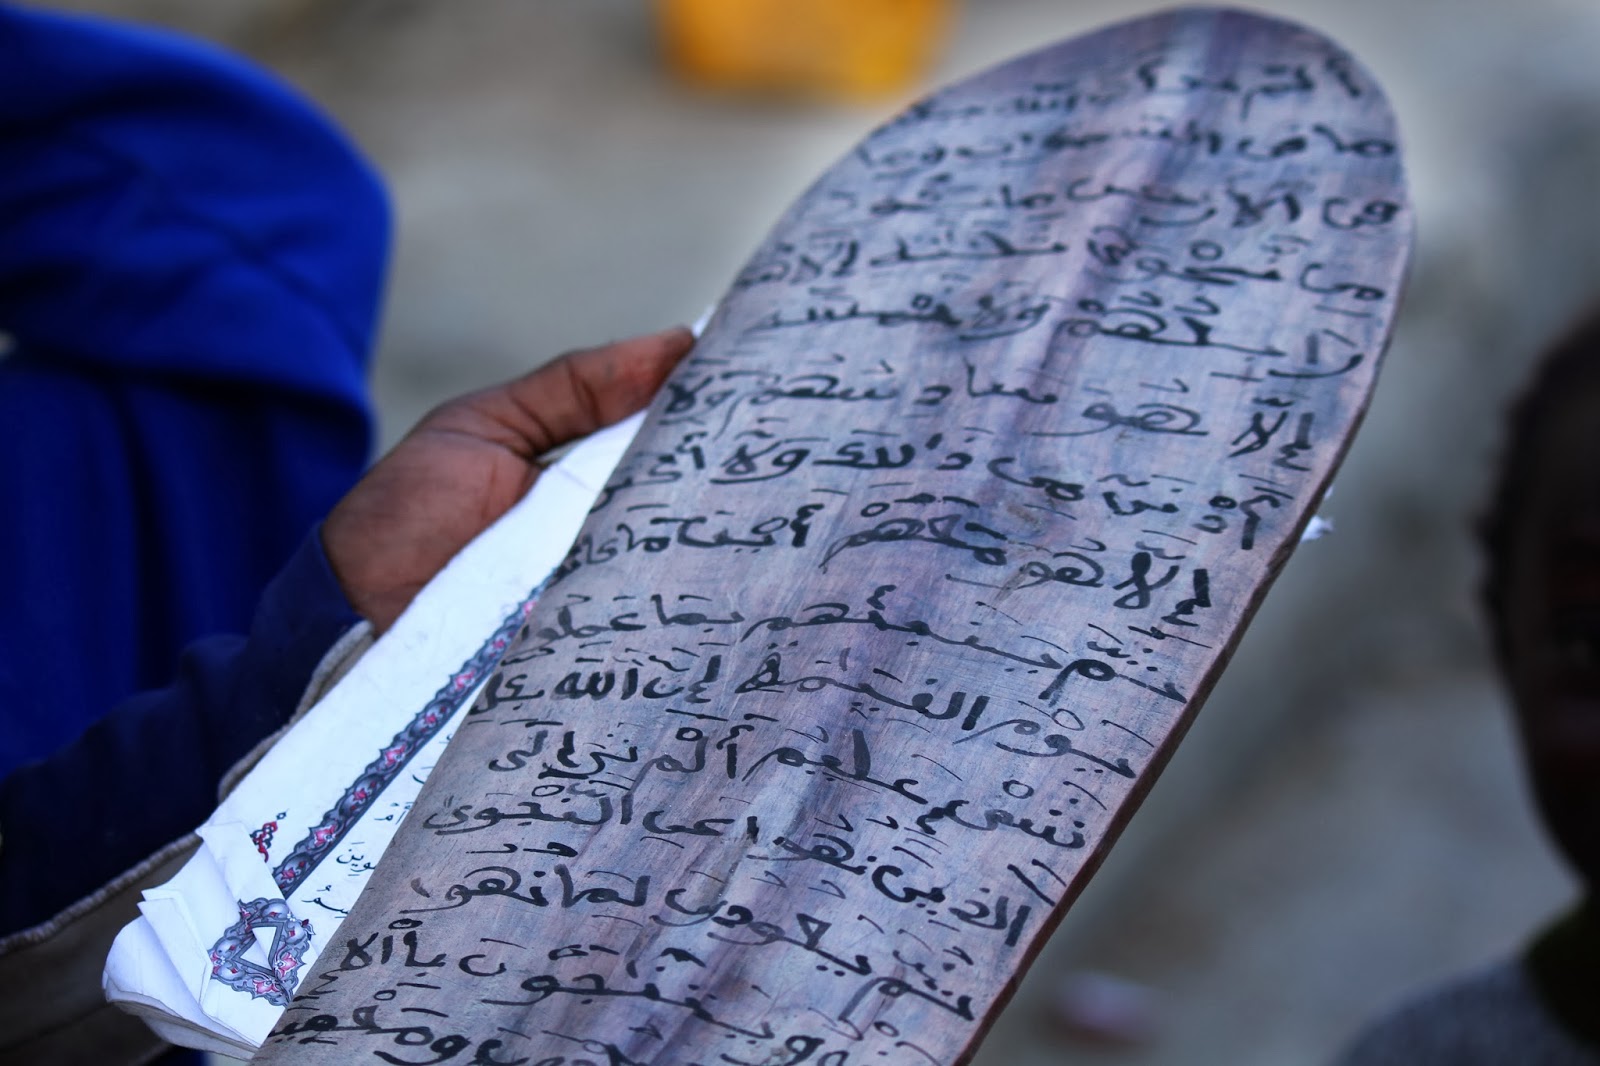 ألم تر أن الله يعلم
ما في السموات وما
في الأرض ما يكون
من نجوى ثلثة إلا هو
رابعهم ولا خمسة
إلا هو سادسهم ولا
أدنى من ذالك ولا أكثر
إلا هو معهم أين ما كانوا
ثم ينبئهم بما عملوا
يوم القيمة إن الله بكل
شيء عليم ألم تر إلى
الذين نهوا عن النجوى
ثم يعودون لما نهوا
ويتنجون بالإ
ومعصيت